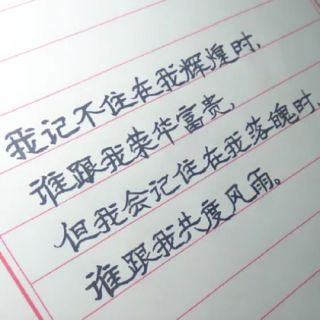 我记不住在我辉煌时,
谁跟我荣华富贵,
但我会记住在我落魄时,
谁跟我共度风雨。